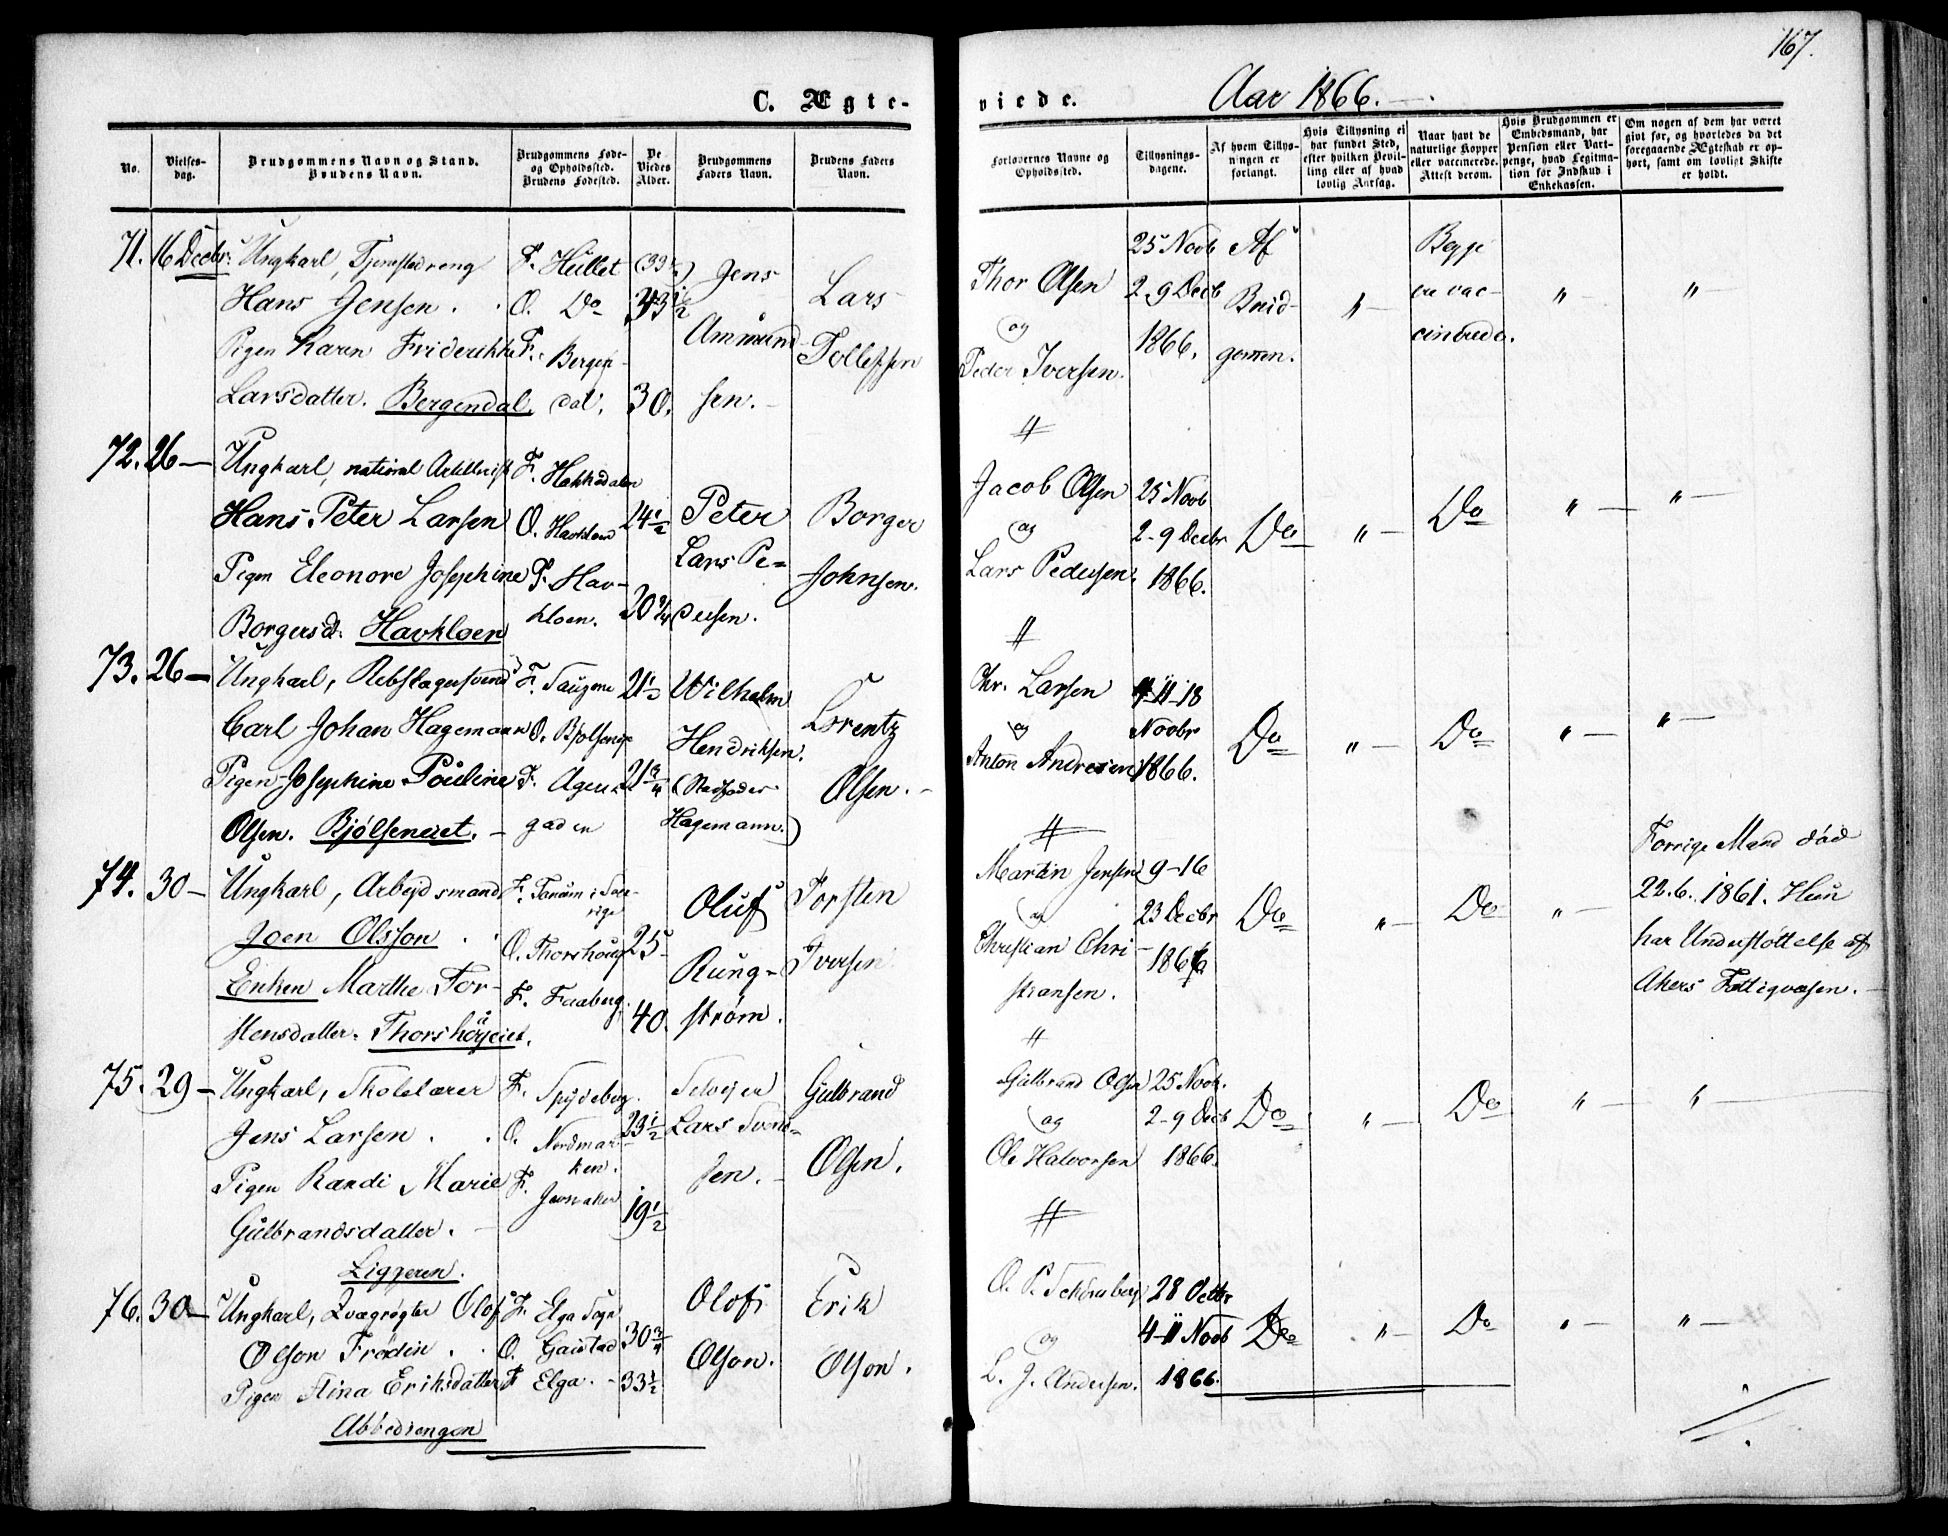 167.
C. Ægte-
viede.
Aar 1866.
No.
Vielses-
dag.
Brudgommens Navn og Stand.
Brudens Navn.
Brudgommens Føde-
og Opholdssted.
Brudens Fødested.
De
Viedes
Alder.
Brudgommens
Faders Navn.
Brudens Faders
Navn.
Forlovernes Navne og
Opholdssted.
Tillysnings-
dagene.
Af hvem Tillys-
ningen er
forlangt.
Hvis Tillysning ei
har fundet Sted,
efter hvilken Bevil-
ling eller af hvad
lovlig Aarsag.
Naar havt de
naturlige Kopper
eller vaccinerede.
Attest derom.
Hvis Brudgommen er
Embedsmand, har
Pension eller Vart-
penge, hvad Legitma-
tion for Indskud i
Enkekassen.
Om nogen af dem har været
givt før, og hvorledes da det
foregaaende Ægteskab er op-
hørt, samt om lovligt Skifte
er holdt.
71. 16 Decbr. Ungkarl, Tjenestedreng
Hans Jensen.
Pigen Karen Friderikke
Larsdatter. Bergendal.
F. Hullet
O. Do
F. Bergen-
dal.
33 1/2
30.
Jens
Ammund-
sen.
Lars
Tollefsen
Thor Olsen
og
Peder Iversen.
25 Novb
2-9 Decb
1866.
Af
Brud-
gommen.
"
Begge
ere vac-
cinerede.
"
"
72. 26 — Ungkarl, national Artillerist
Hans Peter Larsen
Pigen Eleonore Josephine
Borgersd. Havkloen
F. Hakkedalen
O. Havkloen
F. Hav-
kloen.
24 1/2
20 3/4
Peter
Lars Pe-
dersen.
Borger
Johnsen.
Jacob Olsen
og
Lars Pedersen.
25 Novb
2-9 Decbr
1866.
Do
"
Do
"
"
73. 26 — Ungkarl, Rebslagersvend
Carl Johan Hagemann
Pigen Josephine Pouline
Olsen. Bjølseneiet.
F. Saugene
O. Bjølseneie
F. Agers-
gaden
21 1/2
21 3/4
Wilhelm
Hendriksen.
(Stedfader
Hagemann.)
Lorentz
Olsen.
Chr. Larsen
og
Anton Andresen
4-11-18
Novbr
1866.
Do
"
Do
"
"
74. 30 — Ungkarl, Arbejdsmand
Joen Olsson
Enken Marthe Tor-
stensdatter.
F. Tanum i Sve-
rige
O. Thorshoug
F. Faaberg.
25
40.
Oluf
Rung-
strøm.
Torsten
Iversen
Martin Jensen
og
Christian Chri-
stiansen.
9-16
23 Decbr
1866
Do
"
Do
"
Forrige Mand død
22.6.1861. Hun
har Understøttelse af
Akers Fattigvæsen.
75. 29 — Ungkarl, Skolelærer
Jens Larsen
Pigen Randi Marie
Gulbrandsdatter.
Liggeren.
F. Spydeberg.
O. Nordmar-
ken.
F. Jevnaker
23 1/2
19 1/2
Selvejer
Lars Svend-
sen.
Gulbrand
Olsen.
Gulbrand Olsen
og
Ole Halvorsen
25 Novb.
2-9 Decb
1866.
Do
"
Do
"
"
76. 30 — Ungkarl, Qvægrøgter Olof
Olson Frødin
Pigen Stina Eriksdatter
Abbediengen
F. Elga Sogn
O. Gaustad
F Elga.
30 3/4
33 1/2
Olof
Olson.
Erik
Olson.
og
L. J. Andersen.
28 Octbr
4-11 Novb
1866.
Do
"
Do
"
"